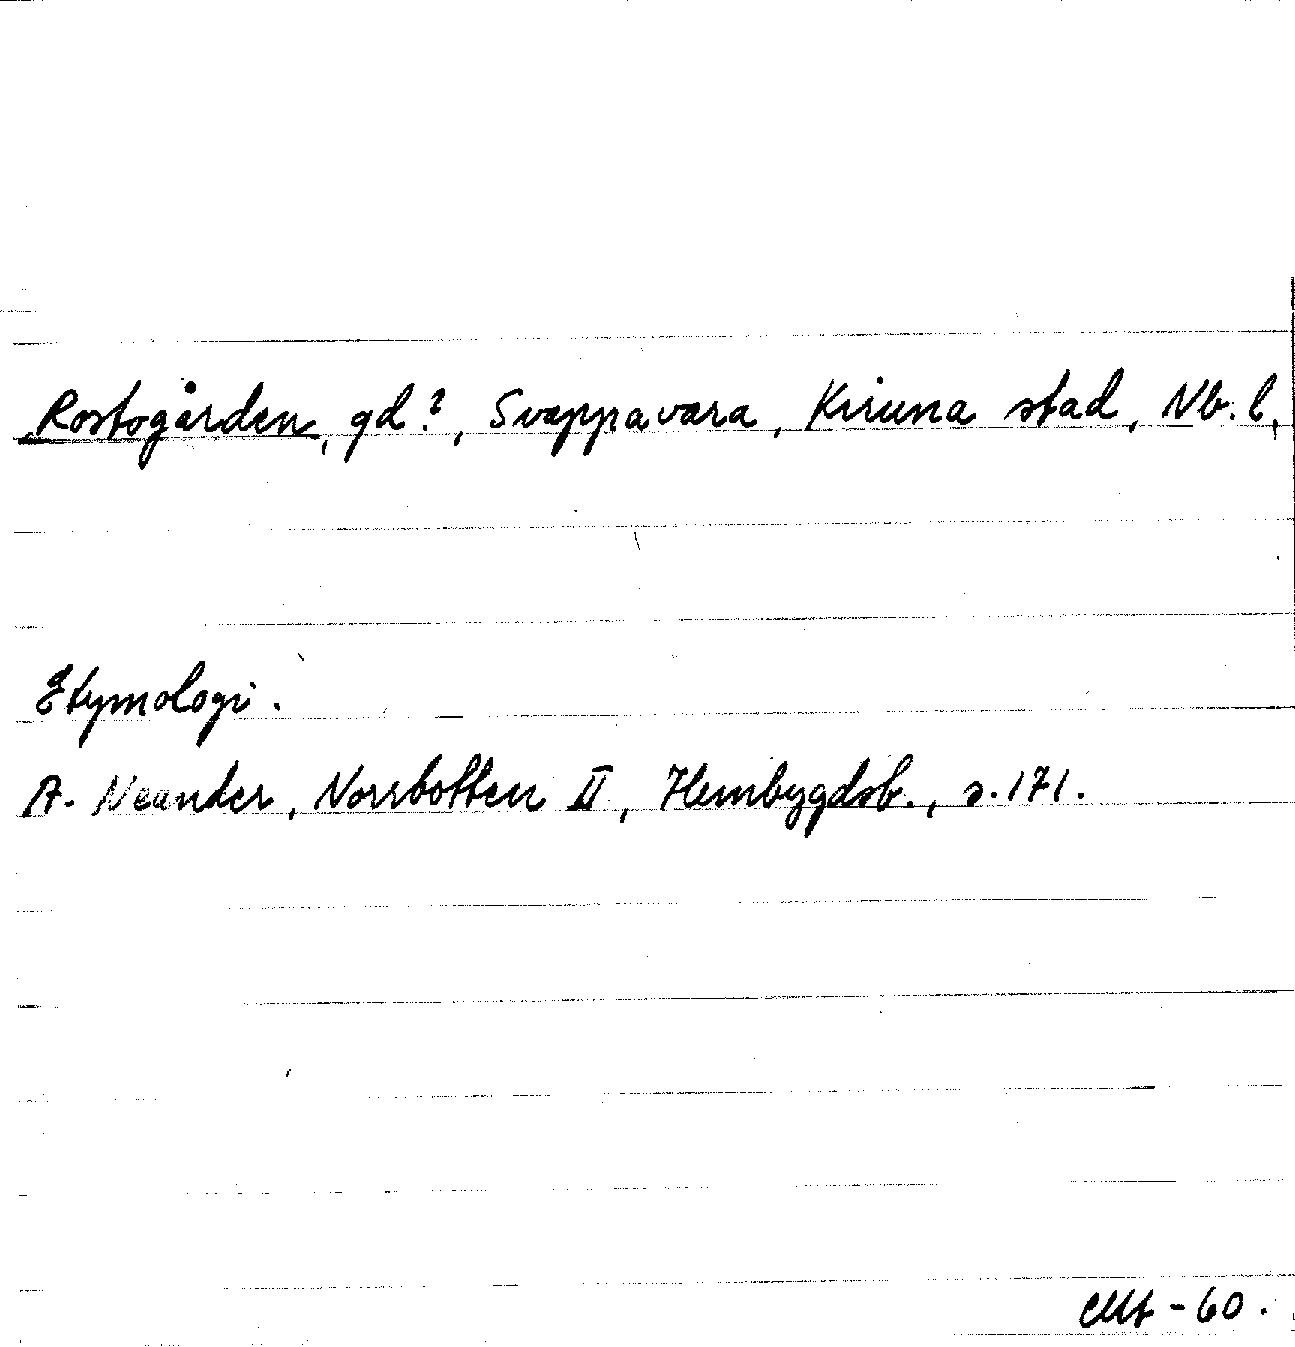 Rostogården, gd?, Svappavara, Kiruna stad, Nb. l,
Etymologi.
A. Neander, Norrbotten II, Hembygdsb., s. 171.
-60.